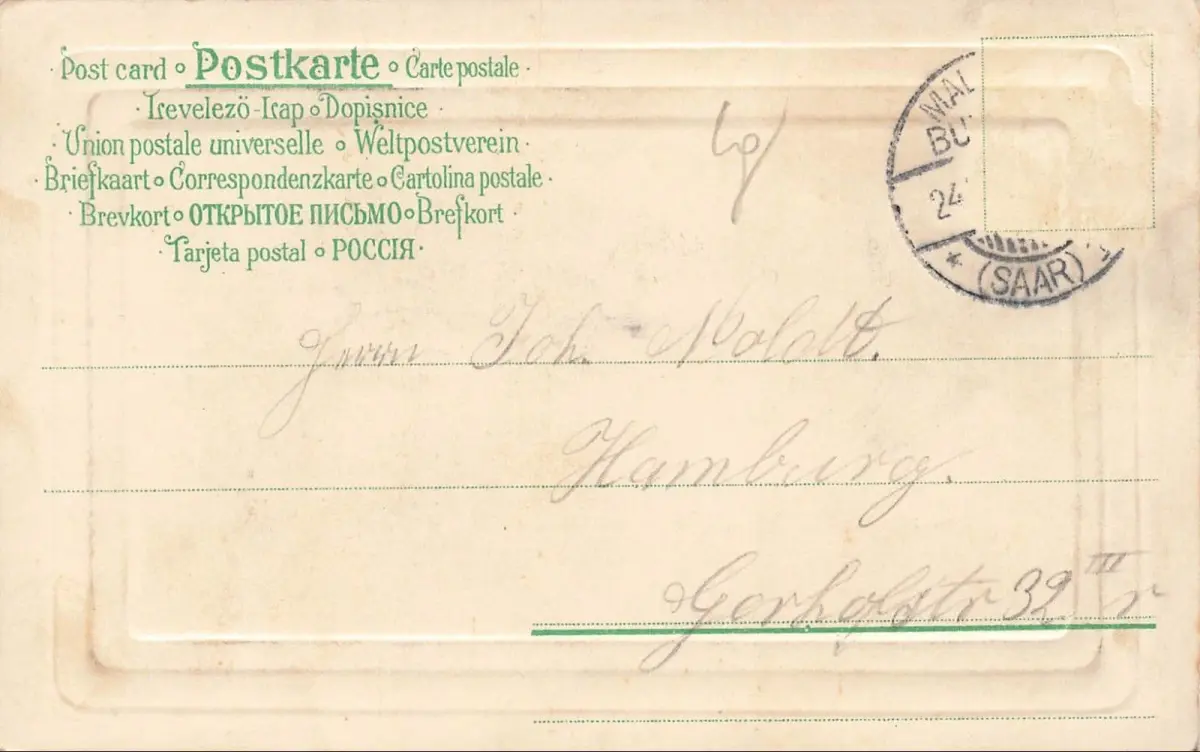 · Post card ∘ Postkarte ∘ Carte postale ·
· Levelezö-Lap ∘ Dopisnice ·
· Union postale universelle ∘ Weltpostverein ·
· Briefkaart ∘ Correspondenzkarte ∘ Cartolina postale ·
· Brevkort ∘ ОТКРЫТОЕ ПИСЬМО ∘ Brefkort ·
· Tarjeta postal ∘ РОССІЯ ·
MAL
BU
24
* (SAAR)
Herrn Joh. Moldt.
Hamburg.
Gerhofstr 32 III r